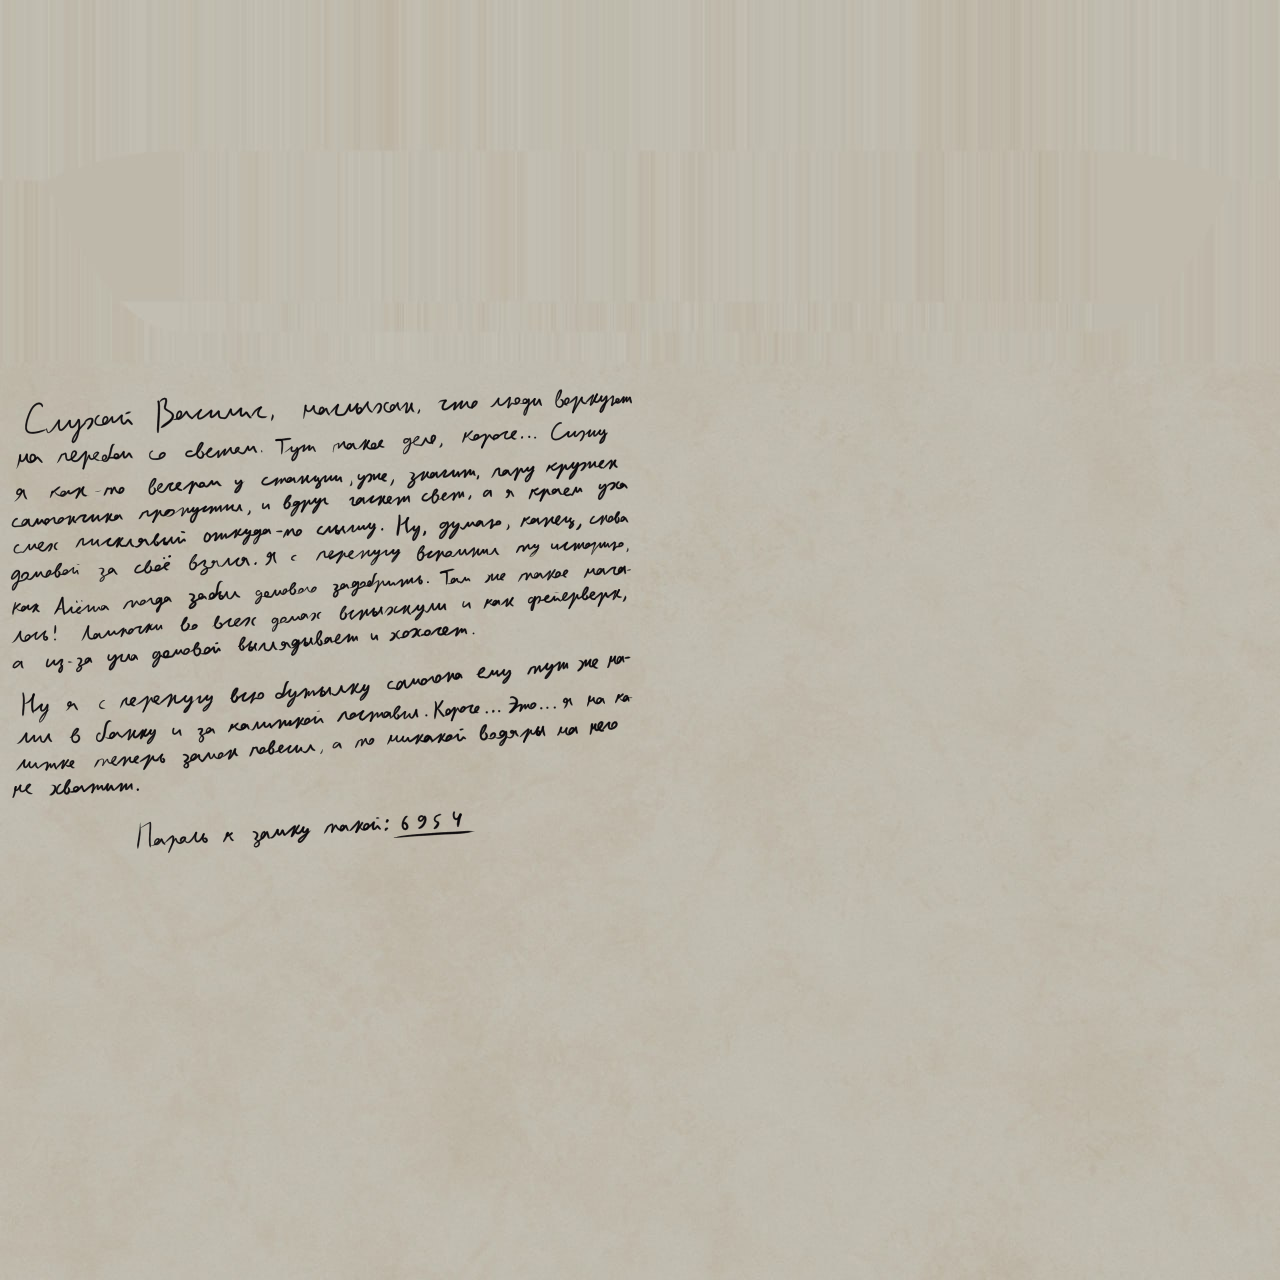 Слухай Василис, наслыхан, что люди воркуют
на перебои со светом. Тут такое дело, короче... Сижу
я как-то вечером у станции, уже, значит, пару кружек
самогончика пропустил, и вдруг гаснет свет, а я краем уха
смех писклявый откуда-то слышу. Ну, думаю, капец, снова
домовой за своё взялся. Я с перепугу вспомнил ту историю,
как Алёша тогда забыл домового задобрить. Там же такое нача-
лось! Лампочки во всех домах вспыхнули и как фейерверк,
а из-за угла домовой выглядывает и хохочет.
Ну я с перепугу всю бутылку самогона ему тут же на-
лил в банку и за калиткой поставил. Короче... Это... я на ка
литке теперь замок повесил, а то никакой водяры на него
не хватит.
Пароль к замку такой: 6954